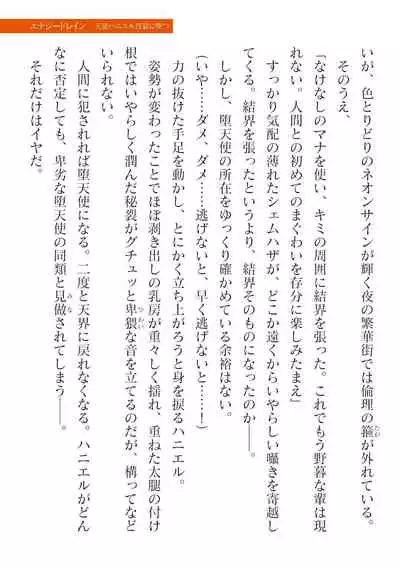 エナジードレイン　天使ハニエル淫欲に喘つ
いが、色とりどりのネオンサインが輝く夜の繁華街では倫理の箍が外れている。
そのうえ、
「なけなしのマナを使い、キミの周囲に結界を張った。これでもう野暮な輩は現
れない。人間との初めてのまぐわいを存分に楽しみたまえ」
すっかり気配の薄れたシェムハザが、どこか遠くからいやらしい囁きを寄越し
てくる。結界を張ったというより、結界そのものになったのか――。
しかし、堕天使の所在をゆっくり確かめている余裕はない。
（いや……ダメ、ダメ……逃げないと、早く逃げないと……！）
力の抜けた手足を動かし、とにかく立ち上がろうと身を捩るハニエル。
姿勢が変わったことでほぼ剥き出しの乳房が重々しく揺れ、重ねた太腿の付け
根ではいやらしく潤んだ秘裂がグチュッと卑猥な音を立てるのだが、構ってなど
いられない。
人間に犯されれば堕天使になる。二度と天界に戻れなくなる。ハニエルがどん
なに否定しても、卑劣な堕天使の同類と見做されてしまう――。
それだけはイヤだ。